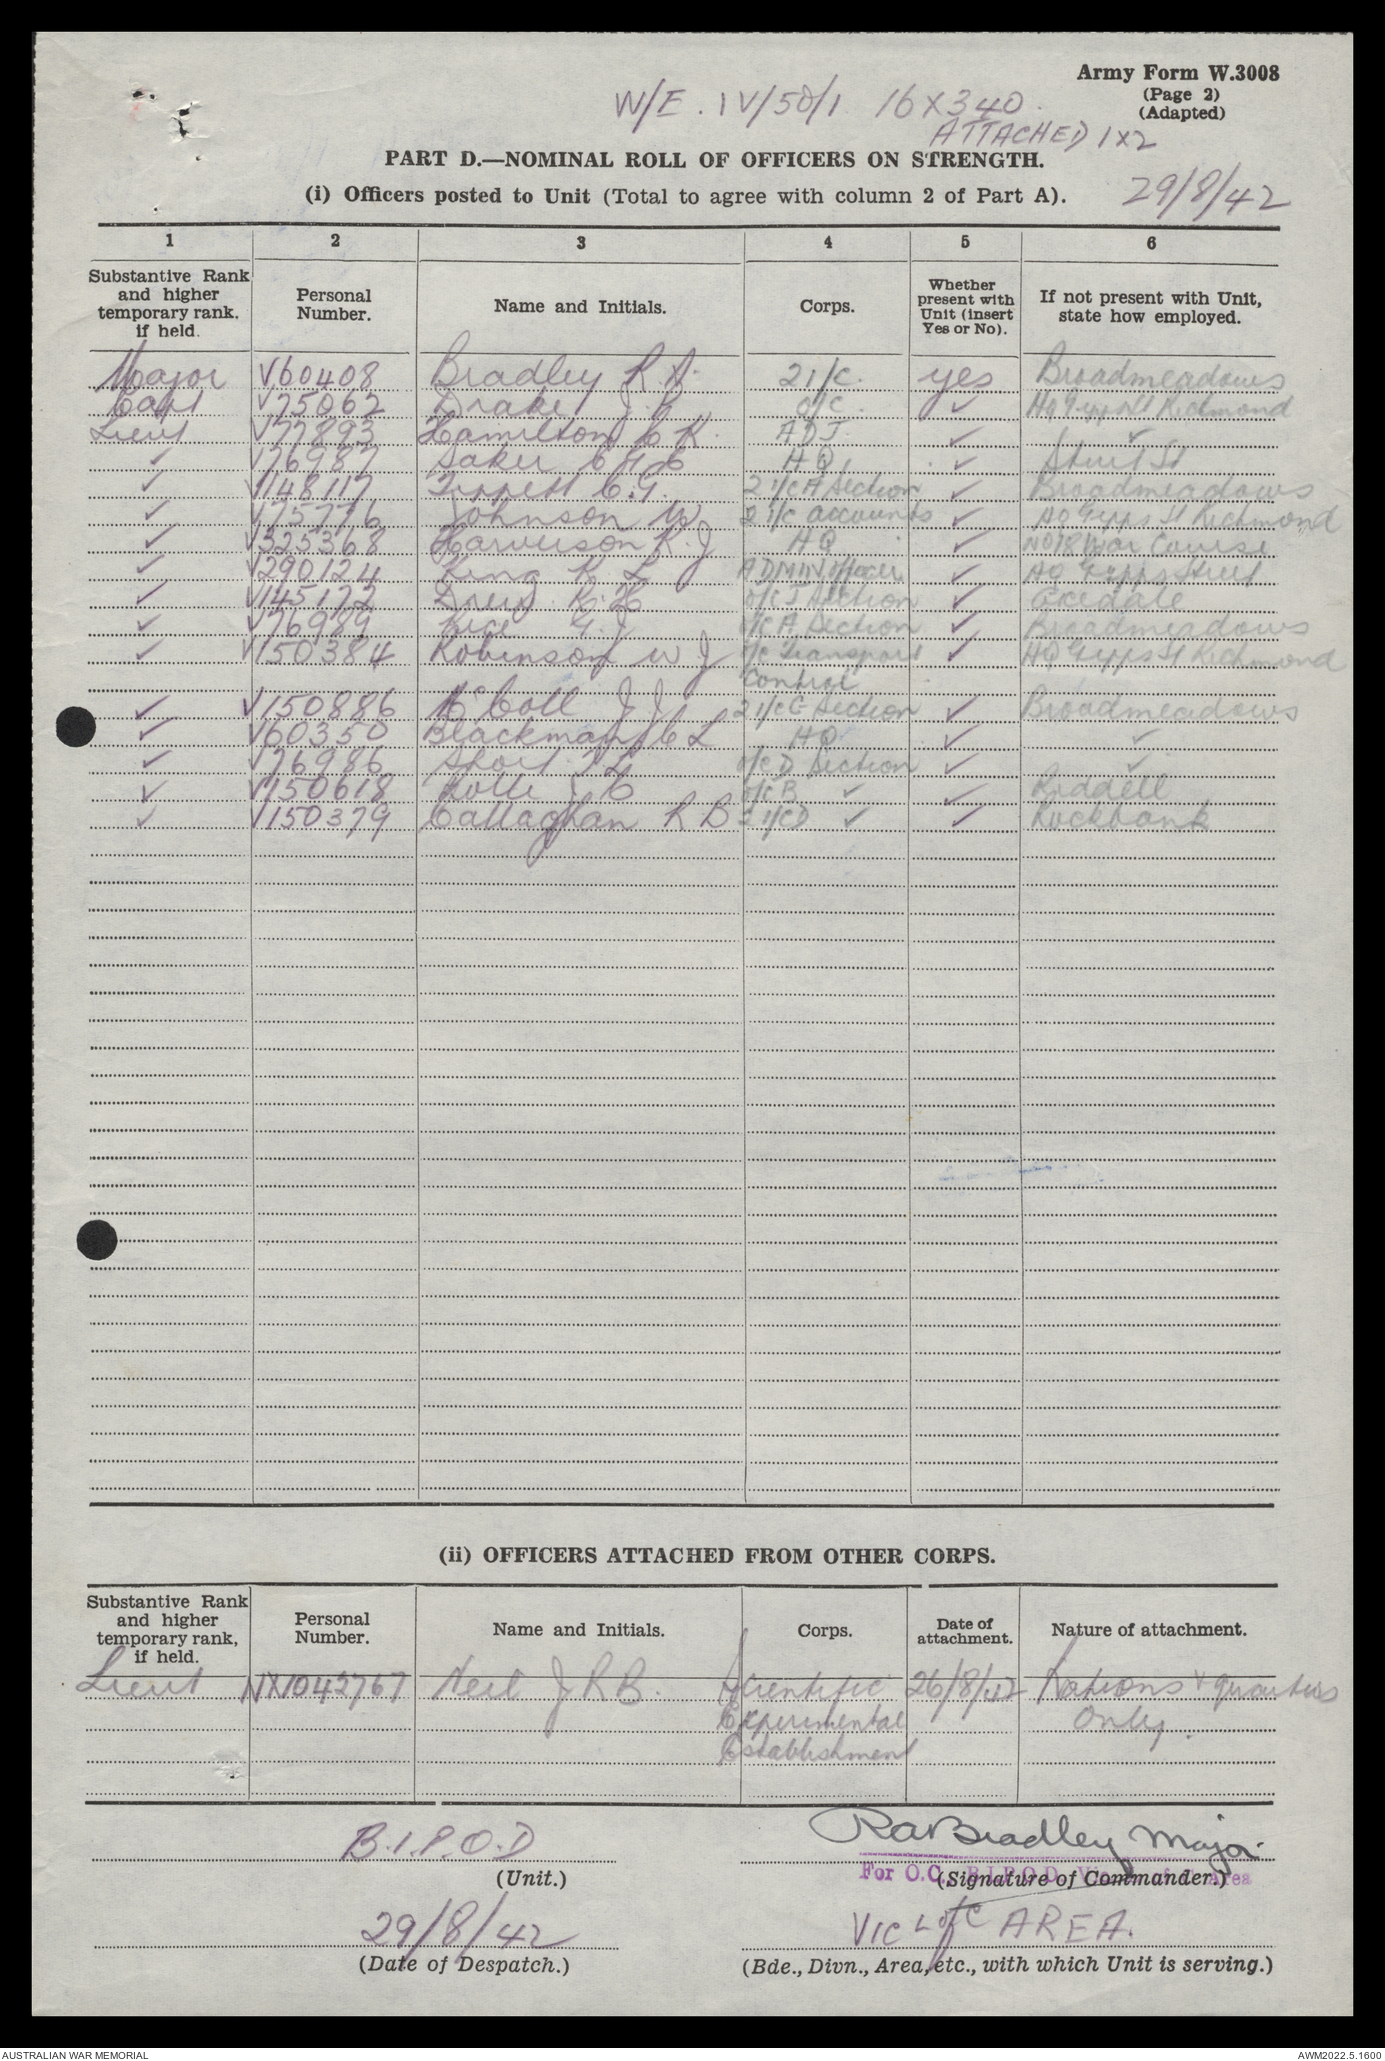 Army Form W.3008
(Page 2)
(Adapted)
W/E. IV/50/1 16X340.
ATTACHED 1X2
PART D.—NOMINAL ROLL OF OFFICERS ON STRENGTH.
(i) Officers posted to Unit (Total to agree with column 2 of Part A).
29/8/42
1 2 3 4 5 6
Substantive Rank and higher temporary rank, if held. Personal Number. Name and Initials. Corps. Whether present with Unit (insert Yes or No). If not present with Unit, state how employed.
Major V60408 Bradley R A. 2 i/c. yes Broadmeadows
Capt V75062 Drake J. o/c. ✓ HQ Gipps St Richmond
Lieut V77893 Hamilton C K. ADJ. ✓ ✓
✓ V76987 Saker HQ. ✓ Sturt St
✓ V148117 Tippett C.G. 2 i/c A Section ✓ Broadmeadows
✓ V75776 Johnson W 2 i/c accounts ✓ HQ Gipps St Richmond
✓ V325368 Harverson R. J HQ ✓ No 18 War Course
✓ V290124 King R L ADMIN Officer ✓ HQ Gipps Street
✓ V145172 Drew R. H o/c J Section ✓ Axedale
✓ V76989 Rice G. J o/c A Section ✓ Broadmeadows
✓ V150384 Robinson W J o/c Transport Control ✓ HQ Gipps St Richmond
✓ V150886 McColl J J 2 i/c C Section ✓ Broadmeadows
✓ V60350 Blackman C L HQ ✓ ✓
✓ V76986 Short o/c D Section ✓ ✓
✓ V150618 J C o/c B ✓ ✓ Riddell
✓ V150379 Callaghan R B 2 i/c D ✓ ✓ Rockbank
(ii) OFFICERS ATTACHED FROM OTHER CORPS.
Substantive Rank and higher temporary rank, if held. Personal Number. Name and Initials. Corps. Date of attachment. Nature of attachment.
Lieut NX1042767 Neil J R B. Scientific Experimental Establishment 26/8/42 Rations & quarters Only.
B.I.P.O.D
(Unit.)
RABradley Major
For O.C. B.I.P.O.D. Vic. L of C Area
(Signature of Commander.)
29/8/42
(Date of Despatch.)
VIC L of C AREA.
(Bde., Divn., Area, etc., with which Unit is serving.)
AUSTRALIAN WAR MEMORIAL
AWM2022.5.1600